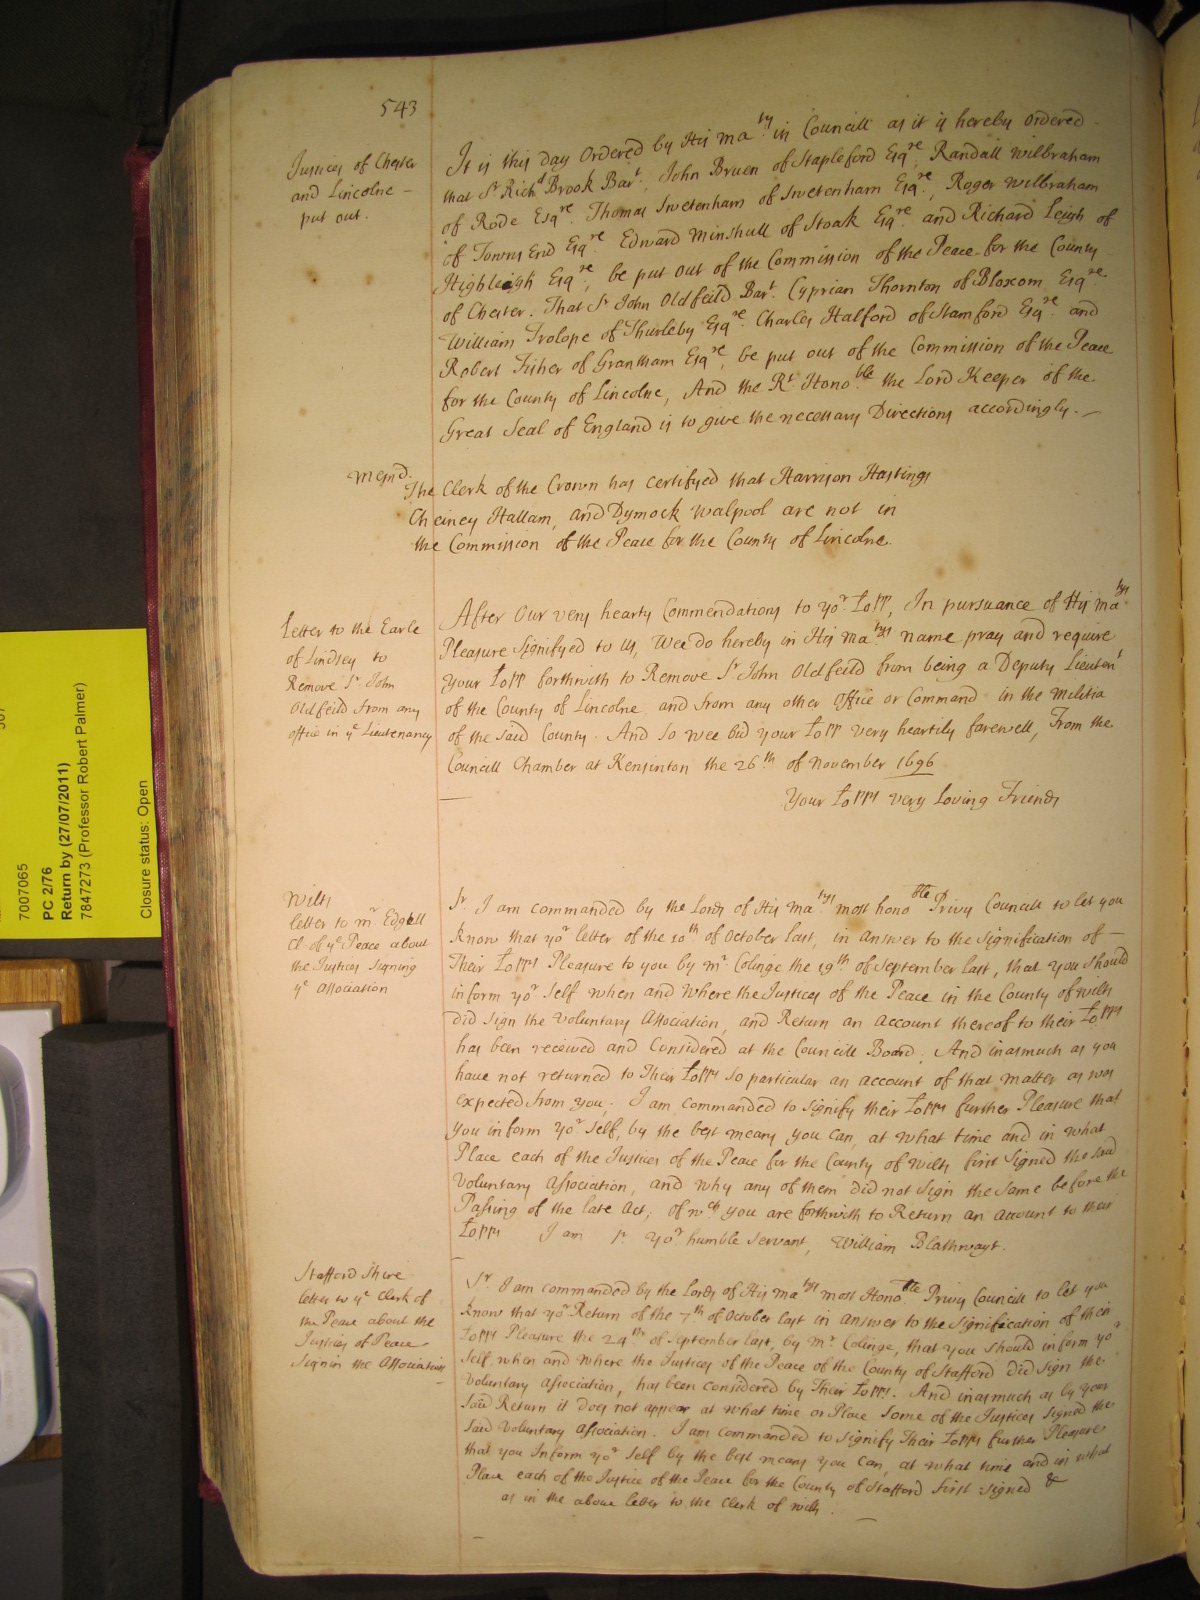 543
Justices of Chester
and Lincolne –
put out.
It is this day Ordered by His Ma.ty in Councill as it is hereby Ordered –
that Sr. Richd Brook Bart., John Bruen of Stapleford Esqre, Randall Wilbraham
of Rode Esqre. Thomas Swetenham of Swetenham Esqre, Roger Wilbraham
of Towns End Esqre. Edward Minshull of Stoak Esqre. and Richard Leigh of
Highleigh Esqre, be put out of the Commission of the Peace for the County
of Chester. That Sr. John Oldfeild Bart. Cyprian Thornton of Bloxom Esqre.
William Trolope of Thurleby Esqre. Charles Halford of Stamford Esqre. and
Robert Fisher of Grantham Esqre, be put out of the Commission of the Peace
for the County of Lincolne, And the Rt. Hono.ble the Lord Keeper of the
Great Seal of England is to give the necessary Directions accordingly. –
Memd.
The Clerk of the Crown has certifyed that Harrison Hastings
Cheiney Hallam, and Dymock Walpool are not in
the Commission of the Peace for the County of Lincolne.
Letter to the Earle
of Lindsey to
Remove Sr. John
Oldfeild from any
office in ye Lieutenancy
After Our very hearty Commendations to yor. Lopp, In pursuance of His Matys
Pleasure Signifyed to Us, Wee do hereby in His Ma.tys name pray and require
your Lopp forthwith to Remove Sr. John Oldfeild from being a Deputy Lieutent
of the County of Lincolne and from any other Office or Command in the Militia
of the said County. And so wee bid your Lopp very heartily farewell, From the
Councill Chamber at Kensinton the 26th. of November 1696
Your Lopps very Loving Friends
Wilts
letter to mr. Edgell
Cl. of ye Peace about
the Justices signing
ye Association
Sr. I am commanded by the Lords of His Ma.tys most honoble Privy Councill to let you
know that yor. letter of the 10th of October last, in answer to the signification of –
Their Lopps Pleasure to you by mr. Colinge the 19th. of September last, that you should
inform yor. Self when and where the Justices of the Peace in the County of Wilts
did sign the Voluntary Association, and Return an account thereof to their Lopps
has been received and Considered at the Councill Board. And inasmuch as you
have not returned to Their Lopps so particular an account of that matter as was
expected from you; I am commanded to signify their Lopps further Pleasure that
you inform yor. Self, by the best means you can, at what time and in what
Place each of the Justices of the Peace for the County of Wilts first signed the said
Voluntary Association, and why any of them did not sign the same before the
Passing of the late Act; of wch you are forthwith to Return an account to their
Lopps I am Sr. yor. humble servant, William Blathwayt.
Stafford Shire
letter to ye Clerk of
the Peace about the
Justices of Peace
signin the Association
Sr. I am commanded by the Lords of His Matys most Honoble. Privy Councill to let you
know that yor. Return of the 7th of October last in answer to the signification of their
Lopps Pleasure the 24th of September last, by mr. Colinge, that you should inform yor
self, when and where the Justices of the Peace of the County of Stafford did sign the
Voluntary Association, has been considered by Their Lopps. And inasmuch as by your
said Return it does not appear at what time or Place some of the Justices signed the
said Voluntary Association. I am commanded to signify Their Lopps further Pleasure
that you Inform yor. self by the best means you can, at what time and in what
Place each of the Justice of the Peace for the County of Stafford first signed &
as in the above letter to the Clerk of Wilts.
7007065
PC 2/76
Return by (27/07/2011)
7847273 (Professor Robert Palmer)
Closure status: Open